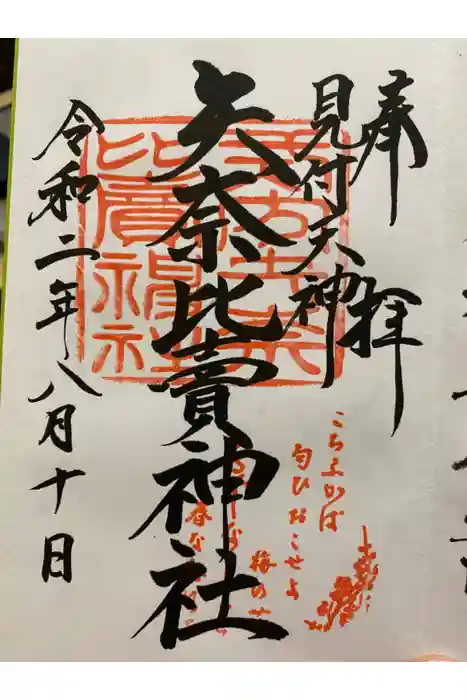 奉拝
見付天神
矢奈比賣神社
令和二年八月十日
こちふかば
匂ひおこせよ
梅の
春な